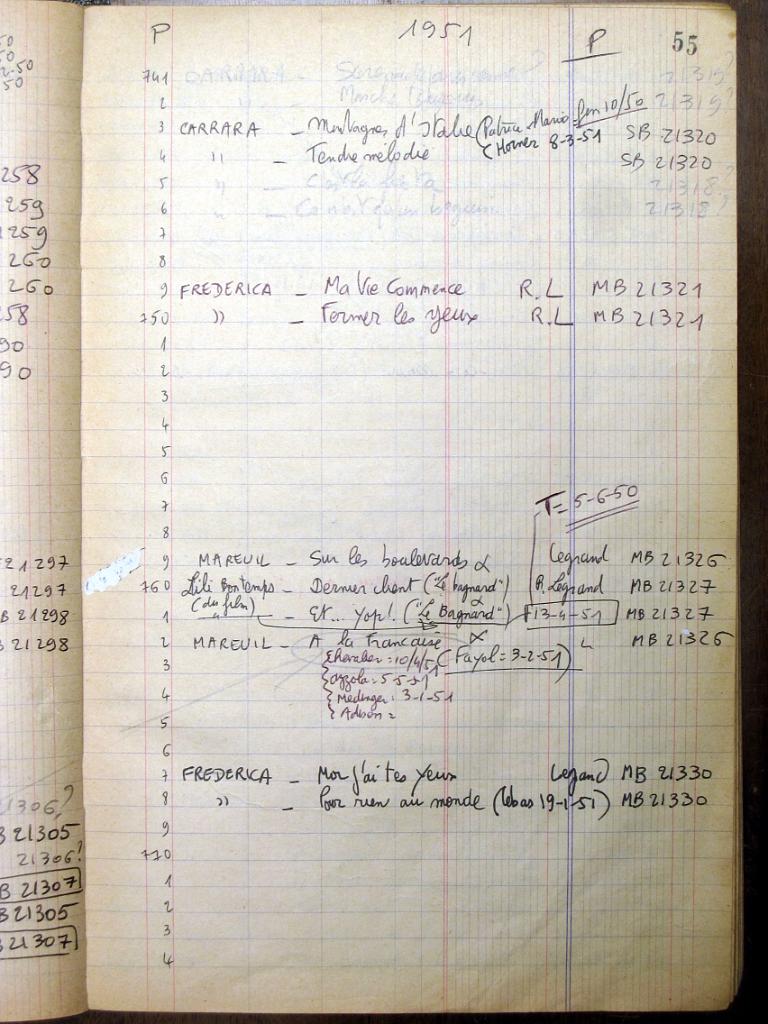 P 1951 P 55
741 CARRARA 21319?
2 21319?
3 CARRARA - Montagnes d'Italie (Patrice Mario = fin 10/50 SB 21320
(Horner 8-3-51
4 " - Tendre mélodie SB 21320
5 " - 21318?
6 " - Ce n'est qu'un 21318?
7
8
9 FREDERICA - Ma Vie Commence R.L MB 21321
750 " - Fermer les yeux R.L MB 21321
1
2
3
4
5
6
7 T = 5-6-50
8
9 MAREUIL - Sur les boulevards Legrand MB 21326
760 Lili Bontemps - Dernier client ("Le bagnard") R. Legrand MB 21327
(du film)
1 " - Et... yop! ("Le Bagnard") 13-4-51 MB 21327
2 MAREUIL - A la Francaise L MB 21326
3 Chevalier = 10/4/51 (Fayol = 3-2-51)
Azzola = 5-5-51
4 Medinger: 3-1-51
Adison =
5
6
7 FREDERICA - Moi j'ai tes yeux Legrand MB 21330
8 " - Pour rien au monde (Lebas 19-1-51) MB 21330
9
770
1
2
3
4
258
259
1259
260
260
58
90
90
21297
21297
B 21298
B 21298
1306?
B 21305
21306?
B 21307
B 21305
B 21307